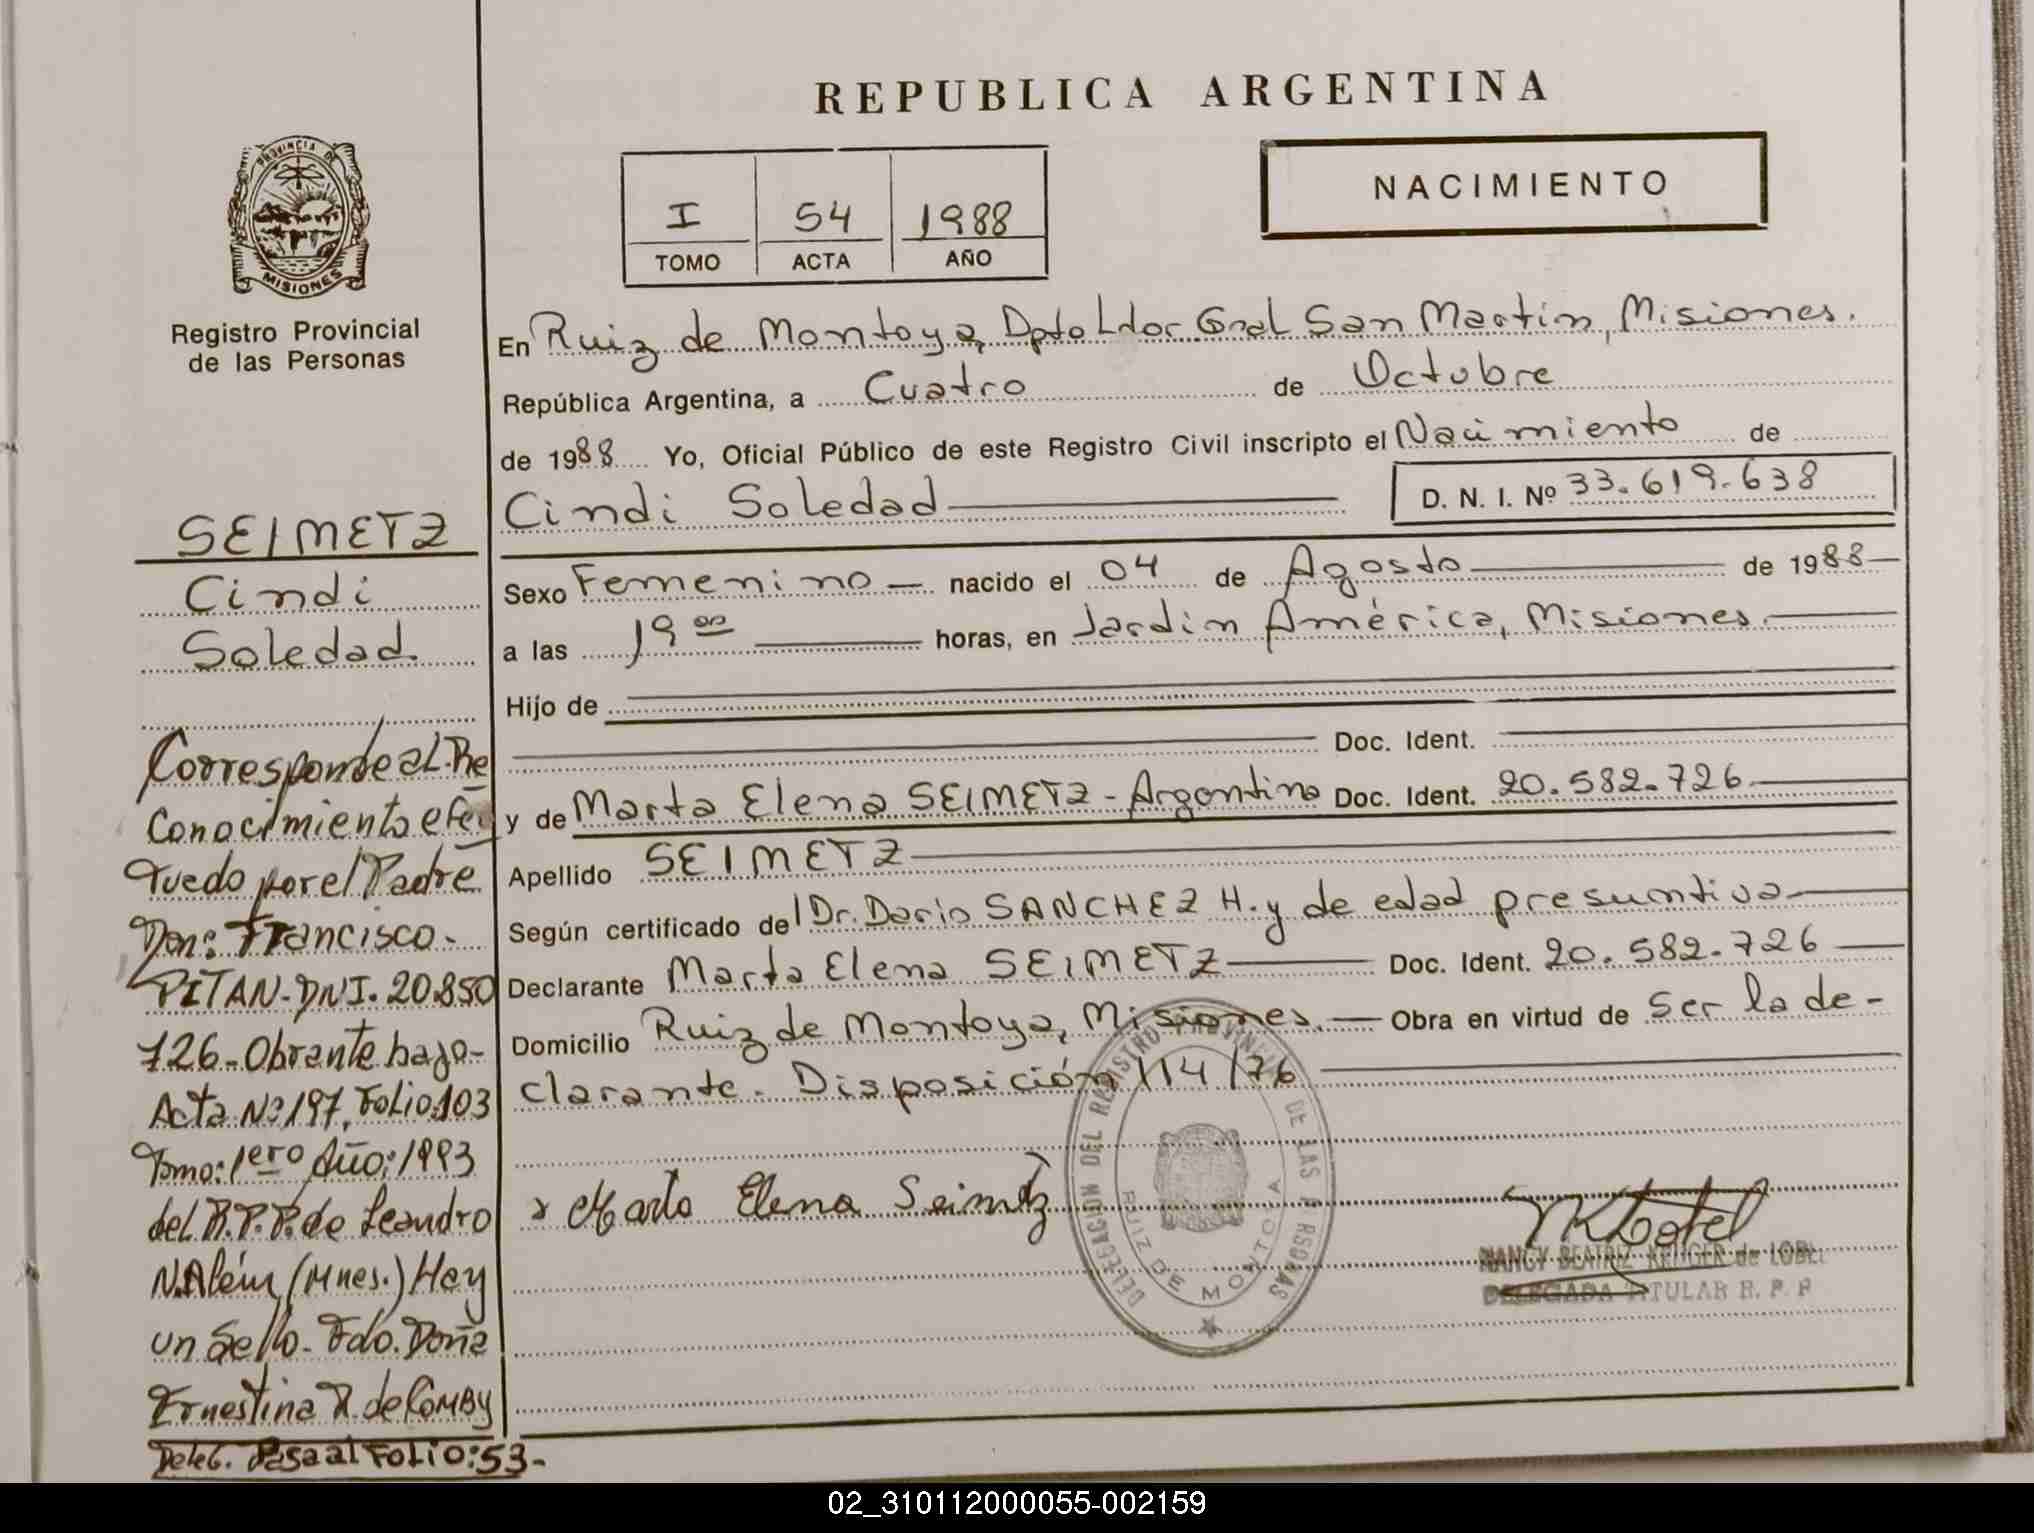 REPUBLICA ARGENTINA
NACIMIENTO
I 54 1988
TOMO ACTA AÑO
PROVINCIA DE
MISIONES
Registro Provincial
de las Personas
SEIMETZ
Cindi
Soledad.
Corresponde al Re
Conocimiento efec
tuado por el Padre
Don: Francisco.
PITAN-DNI. 20.850
726-Obrante bajo-
Acta Nº 197, Folio:103
Tomo: 1ero Año: 1993
del R.P.P. de Leandro
N. Além (Mnes.) Hay
un Sello. Fdo. Doña
Ernestina R. de COMBY
Deleg. Pasa al FOLIO:53-
En Ruiz de Montoya, Dpto Ldor. Gral San Martin, Misiones.
República Argentina, a Cuatro de Octubre
de 1988 Yo, Oficial Público de este Registro Civil inscripto el Nacimiento de
Cindi Soledad D. N. I. Nº 33.619.638
Sexo Femenino nacido el 04 de Agosto de 1988
a las 19 00 horas, en Jardin América, Misiones.
Hijo de
Doc. Ident.
y de Marta Elena SEIMETZ - Argentina Doc. Ident. 20.582.726
Apellido SEIMETZ
Según certificado del Dr. Dario SANCHEZ H. y de edad presuntiva
Declarante Marta Elena SEIMETZ Doc. Ident. 20.582.726
Domicilio Ruiz de Montoya, Misiones. Obra en virtud de Ser la de-
clarante. Disposición 114/76
Marta Elena Seimetz
DELEGACION DEL REGISTRO PROVINCIAL DE LAS PERSONAS
RUIZ DE MONTOYA
NANCY BEATRIZ KRUGER de LOBEL
DELEGADA TITULAR R. P. P
02_310112000055-002159